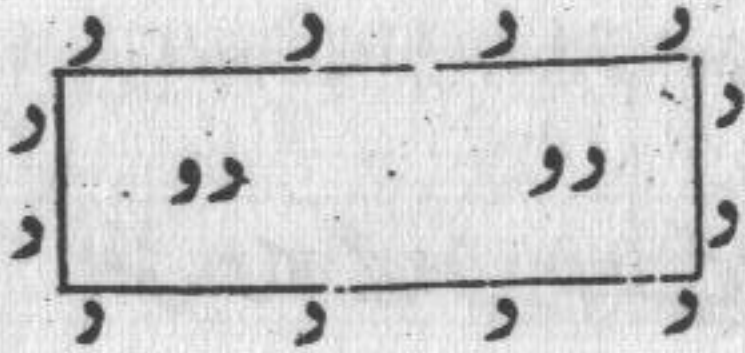 د د د د
د د
دو دو
د د
د د د د